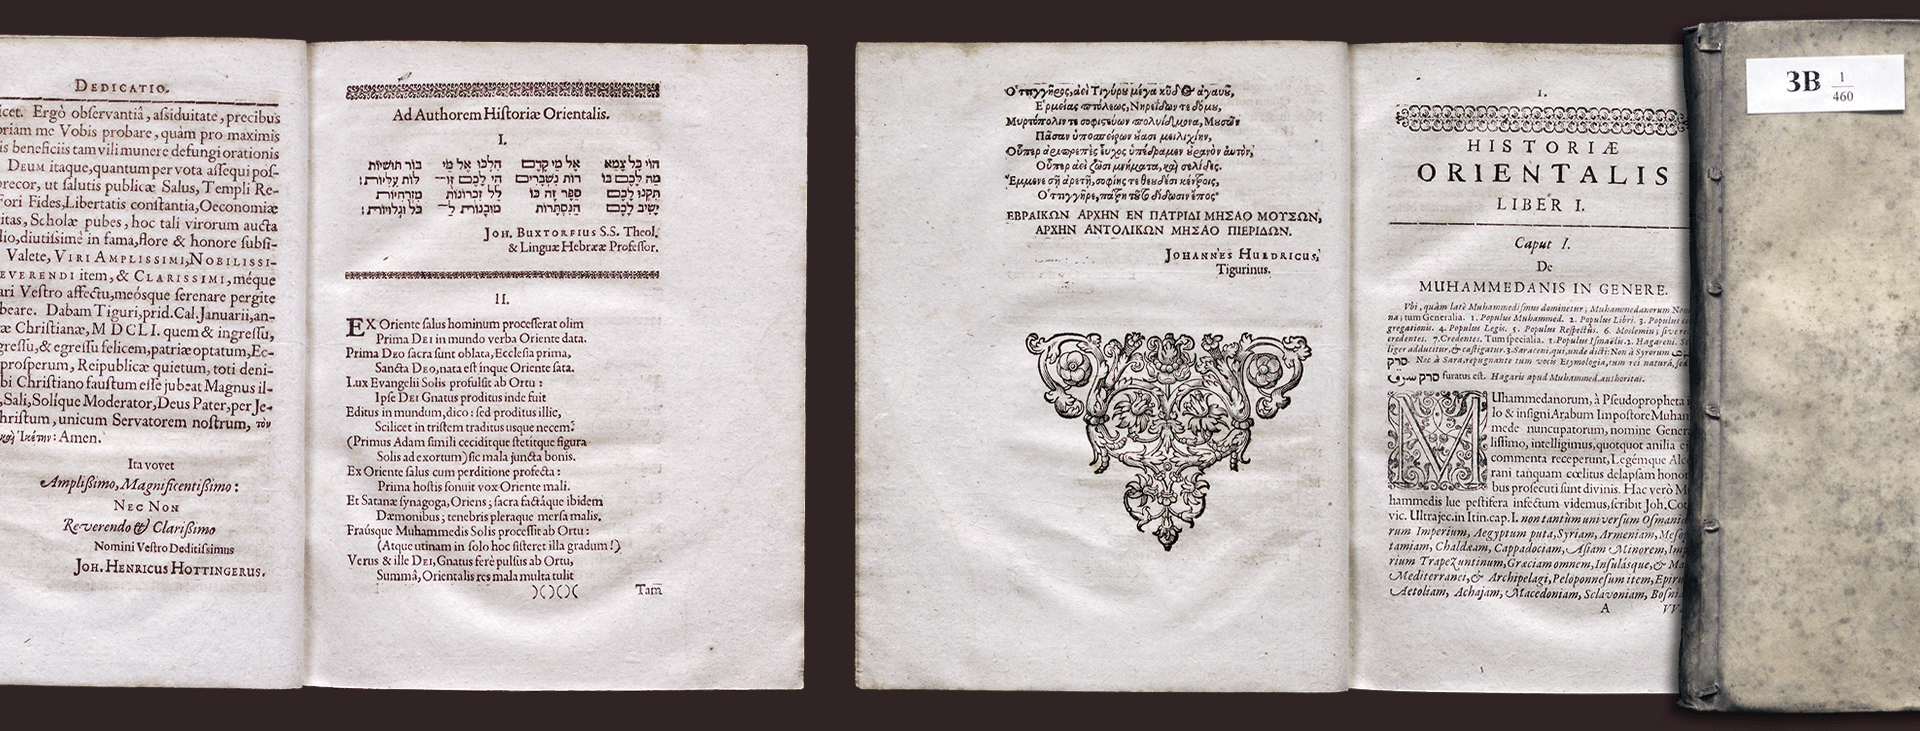 DEDICATIO.
icet. Ergò obſervantiâ, aſsiduitate, precibus
oriam me Vobis probare, quàm pro maximis
is beneficiis tam vili munere defungi orationis
DEUM itaque, quantum per vota aſſequi poſ-
orecor, ut ſalutis publicæ Salus, Templi Re-
Fori Fides, Libertatis conſtantia, Oeconomiæ
itas, Scholæ pubes, hoc tali virorum aucta
lio, diutiſsimè in fama, flore & honore ſubſi-
Valete, VIRI AMPLISSIMI, NOBILISSI-
EVERENDI item, & CLARISSIMI, méque
ari Veſtro affectu, meósque ſerenare pergite
beare. Dabam Tiguri, prid. Cal. Januarii, an-
æ Chriſtianæ, M DCLI. quem & ingreſſu,
greſſu, & egreſſu felicem, patriæ optatum, Ec-
proſperum, Reipublicæ quietum, toti deni-
bi Chriſtiano fauſtum eſſe jubeat Magnus il-
, Sali, Solíque Moderator, Deus Pater, per Je-
hriſtum, unicum Servatorem noſtrum, τὸν
Ἱκέτην: Amen.
Ita vovet
Ampliſſimo, Magnificentiſſimo:
NEC NON
Reverendo & Clariſſimo
Nomini Veſtro Deditiſsimus
JOH. HENRICUS HOTTINGERUS.
Ad Authorem Hiſtoriæ Orientalis.
I.
הוי כל צמא אל מי קדם הלכו אל מי בור תושיות
מה לכם בו רות נשברים הי לכם זו לות עליות!
תקנו לכם ספר זה בו לל זכרונות מזרחיות
ישיב לכם הנסתרות מובנות ל כל וגלויות!
JOH. BUXTORFIUS S.S. Theol.
& Linguæ Hebrææ Profeſſor.
II.
EX Oriente ſalus hominum proceſſerat olim
Prima DEI in mundo verba Oriente data.
Prima DEO ſacra ſunt oblata, Eccleſia prima,
Sancta DEO, nata eſt inque Oriente ſata.
Lux Evangelii Solis profulſit ab Ortu:
Ipſe DEI Gnatus proditus inde fuit
Editus in mundum, dico: ſed proditus illic,
Scilicet in triſtem traditus usque necem:
(Primus Adam ſimili ceciditque ſtetitque figura
Solis ad exortum) ſic mala juncta bonis.
Ex Oriente ſalus cum perditione profecta:
Prima hoſtis ſonuit vox Oriente mali.
Et Satanæ ſynagoga, Oriens; ſacra factáque ibidem
Dæmonibus; tenebris pleraque merſa malis.
Fraúsque Muhammedis Solis proceſſit ab Ortu:
(Atque utinam in ſolo hoc ſiſteret illa gradum!)
Verus & ille DEI, Gnatus ferè pulſus ab Ortu,
Summâ, Orientalis res mala multa tulit
)()()()(
Tam
Ἑρμείας πτόλεως, Νηρεΐδων τε δόμυ,
Πᾶσαν
ΕΒΡΑΙΚΩΝ ΑΡΧΗΝ ΕΝ ΠΑΤΡΙΔΙ ΜΗΣΑΟ ΜΟΥΣΩΝ,
ΑΡΧΗΝ ΑΝΤΟΛΙΚΩΝ ΜΗΣΑΟ ΠΙΕΡΙΔΩΝ.
JOHANNES HULDRICUS,
Tigurinus.
1.
HISTORIÆ
ORIENTALIS
LIBER I.
Caput I.
De
MUHAMMEDANIS IN GENERE.
Vbi, quàm latè Muhammediſmus dominetur; Muhammedanorum Nom
na; tum Generalia. 1. Populus Muhammed. 2. Populus Libri. 3. Populus co
gregationis. 4. Populus Legis. 5. Populus Reſpectus. 6. Moslemin; ſive re
credentes. 7. Credentes. Tum ſpecialia. 1. Populus Iſmaëlis. 2. Hagareni. Sc
liger adducitur, & caſtigatur. 3. Saraceni, qui, unde dicti: Non à Syrorum
סרק Nec à Sara, repugnante tum vocis Etymologia, tum rei naturâ, ſed
סרק سرق furatus eſt. Hagaris apud Muhammed. authoritas.
MUhammedanorum, à Pſeudopropheta i
lo & inſigni Arabum Impoſtore Muham
mede nuncupatorum, nomine Gener
liſſimo, intelligimus, quotquot anilia e
commenta receperunt, Legémque Alc
rani tanquam cœlitus delapſam honor
bus proſecuti ſunt divinis. Hac verò M
hammedis lue peſtifera infectum videmus, ſcribit Joh. Cot
vic. Ultrajec. in Itin. cap. 1. non tantùm univerſum Oſmanid
rum Imperium, Aegyptum puta, Syriam, Armeniam, Meſop
tamiam, Chaldæam, Cappadociam, Aſiam Minorem, Imp
rium Trapezuntinum, Græciam omnem, Inſulásque, & Ma
Mediterranei, & Archipelagi, Peloponneſum item, Epiru
Aetoliam, Achajam, Macedoniam, Sclavoniam, Boſni
A VV
3B 1
460